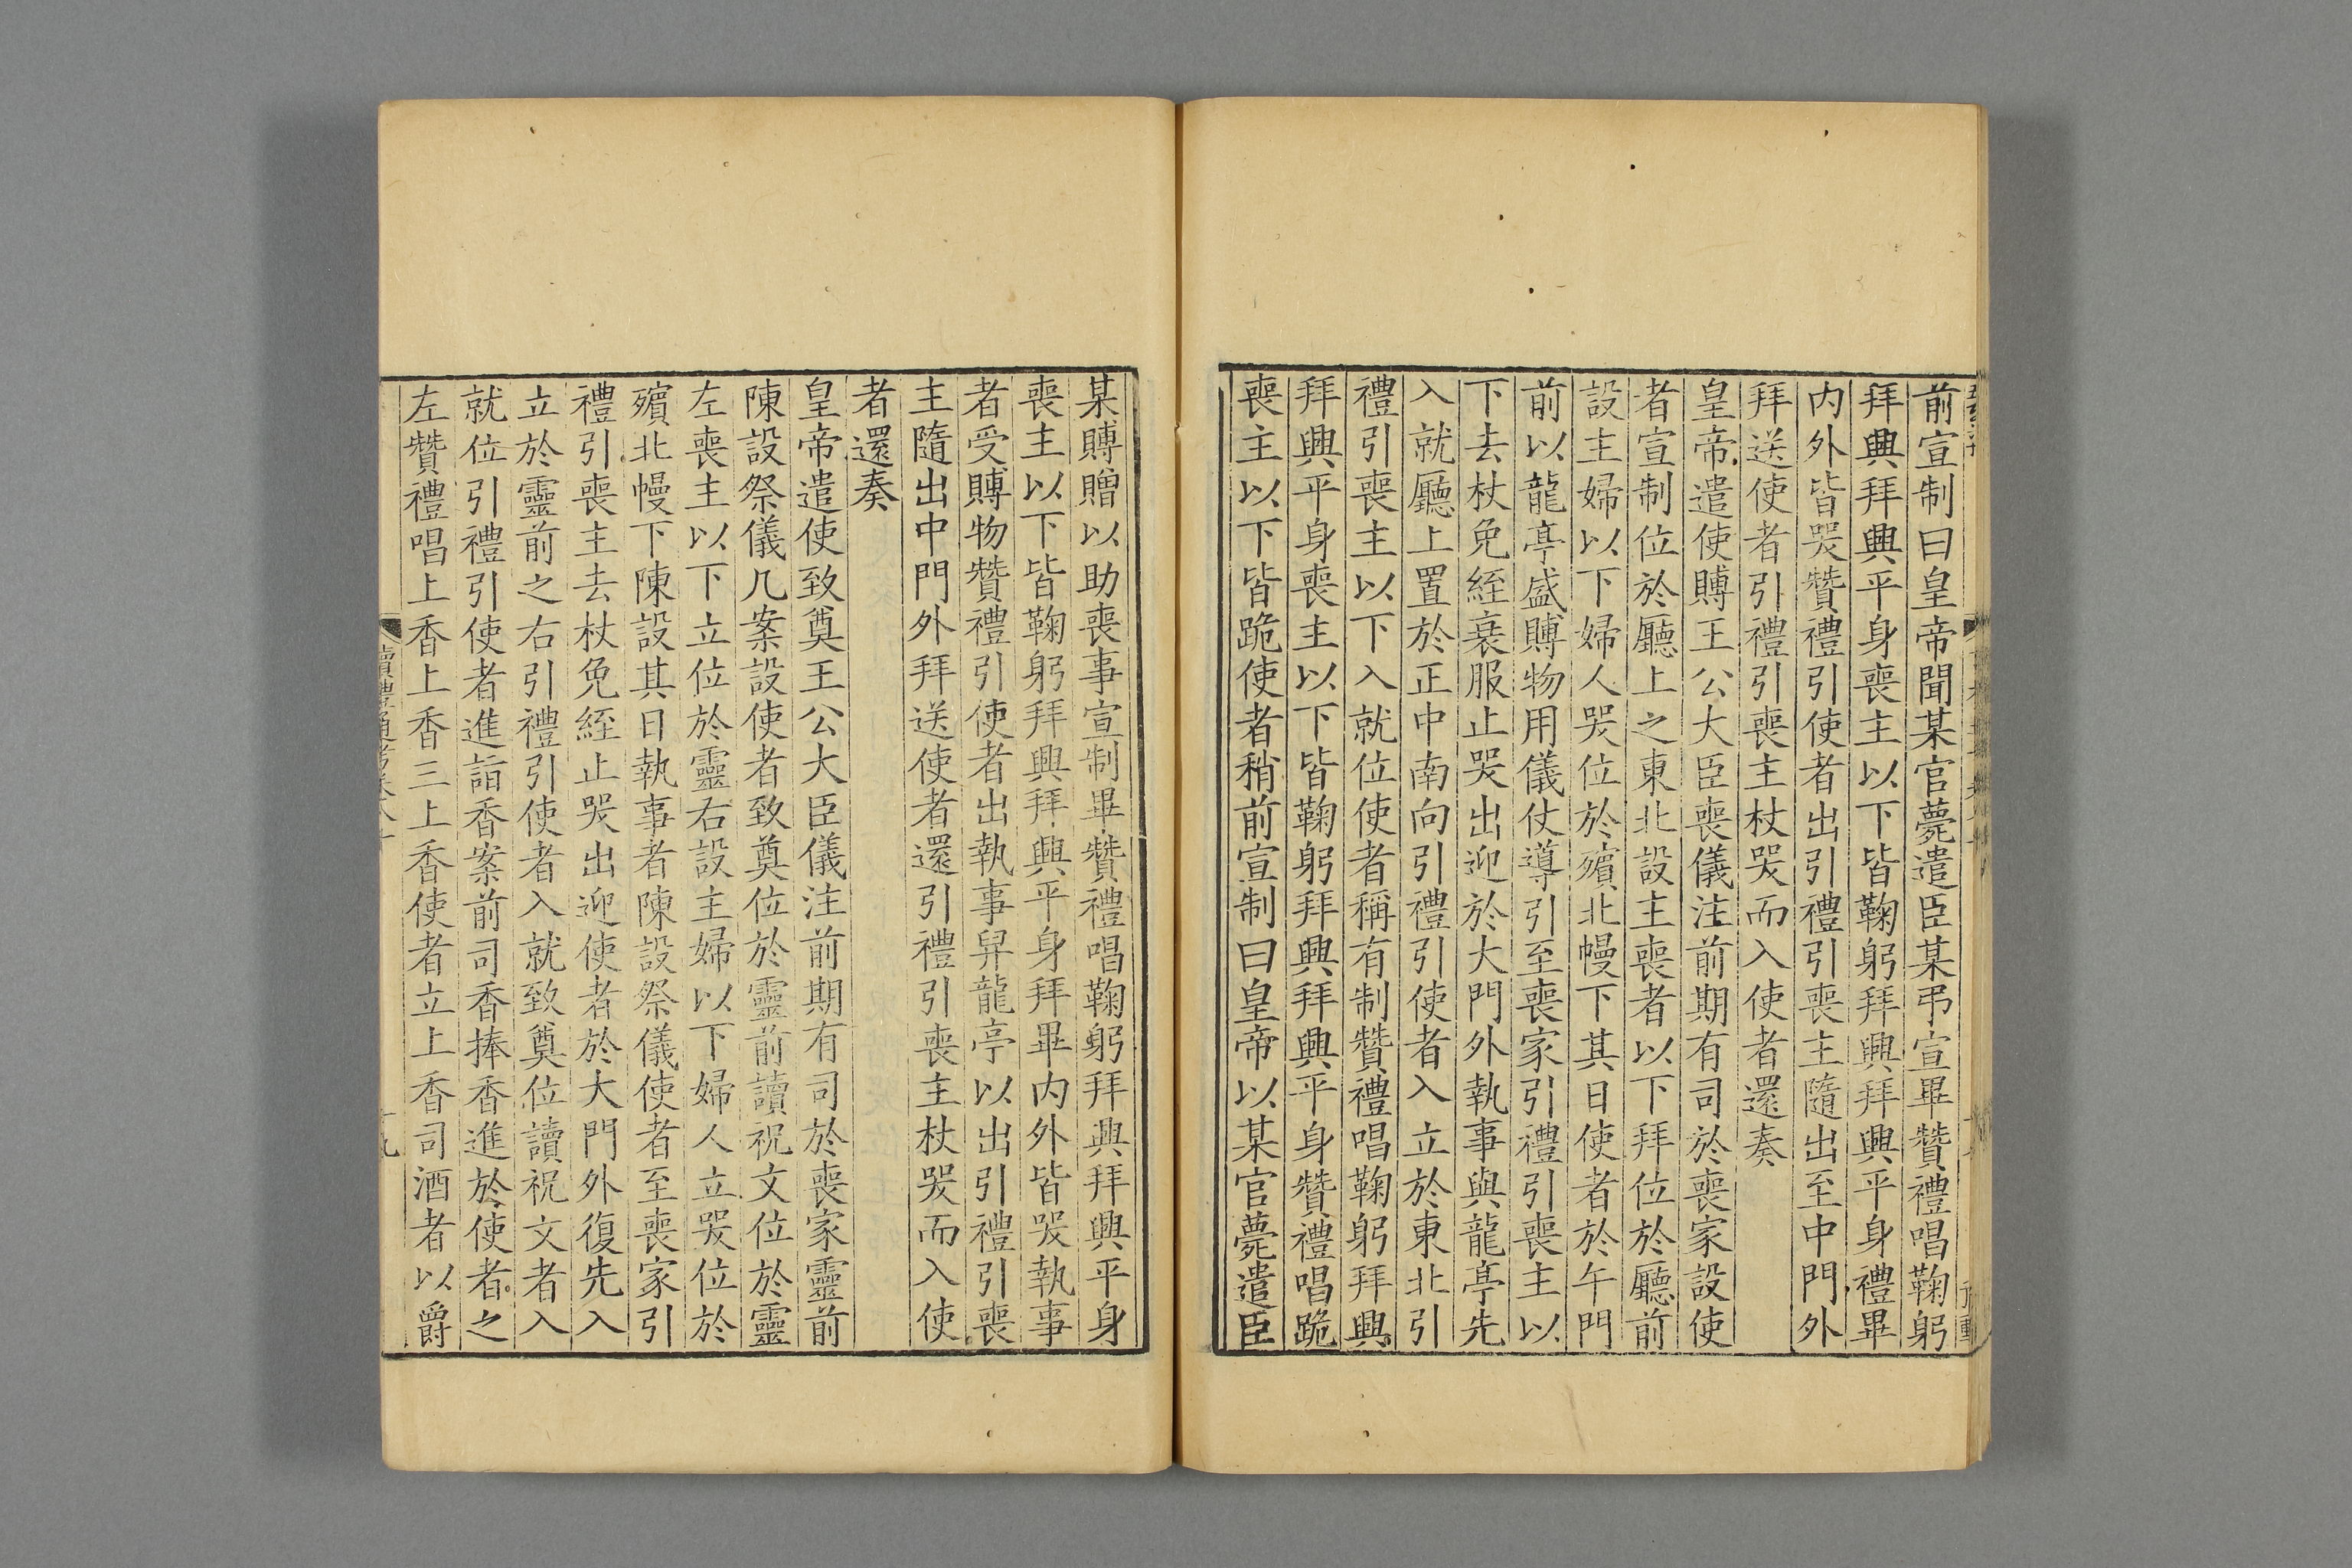 前宣制曰皇帝聞某官薨遣臣某弔宣畢贊禮唱鞠躬
拜興拜興平身喪主以下皆鞠躬拜興拜興平身禮畢
内外皆哭贊禮引使者出引禮引喪主隨出至中門外
拜送使者引禮引喪主杖哭而入使者還奏
皇帝遣使賻王公大臣喪儀注前期有司於喪家設使
者宣制位於廳上之東北設主喪者以下拜位於廳前
設主婦以下婦人哭位於殯北幔下其日使者於午門
前以龍亭盛賻物用儀仗導引至喪家引禮引喪主以
下去杖免絰衰服止哭出迎於大門外執事與龍亭先
入就廳上置於正中南向引禮引使者入立於東北引
禮引喪主以下入就位使者稱有制贊禮唱鞠躬拜興
拜興平身喪主以下皆鞠躬拜興拜興平身贊禮唱跪
喪主以下皆跪使者稍前宣制曰皇帝以某官薨遣臣
某賻贈以助喪事宣制畢贊禮唱鞠躬拜興拜興平身
喪主以下皆鞠躬拜興拜興平身拜畢内外皆哭執事
者受賻物贊禮引使者出執事舁龍亭以出引禮引喪
主隨出中門外拜送使者還引禮引喪主杖哭而入使
者還奏
皇帝遣使致奠王公大臣儀注前期有司於喪家靈前
陳設祭儀几案設使者致奠位於靈前讀祝文位於靈
左喪主以下立位於靈右設主婦以下婦人立哭位於
殯北幔下陳設其日執事者陳設祭儀使者至喪家引
禮引喪主去杖免絰止哭出迎使者於大門外復先入
立於靈前之右引禮引使者入就致奠位讀祝文者入
就位引禮引使者進詣香案前司香捧香進於使者之
左贊禮唱上香上香三上香使者立上香司酒者以爵
讀禮通考卷六十